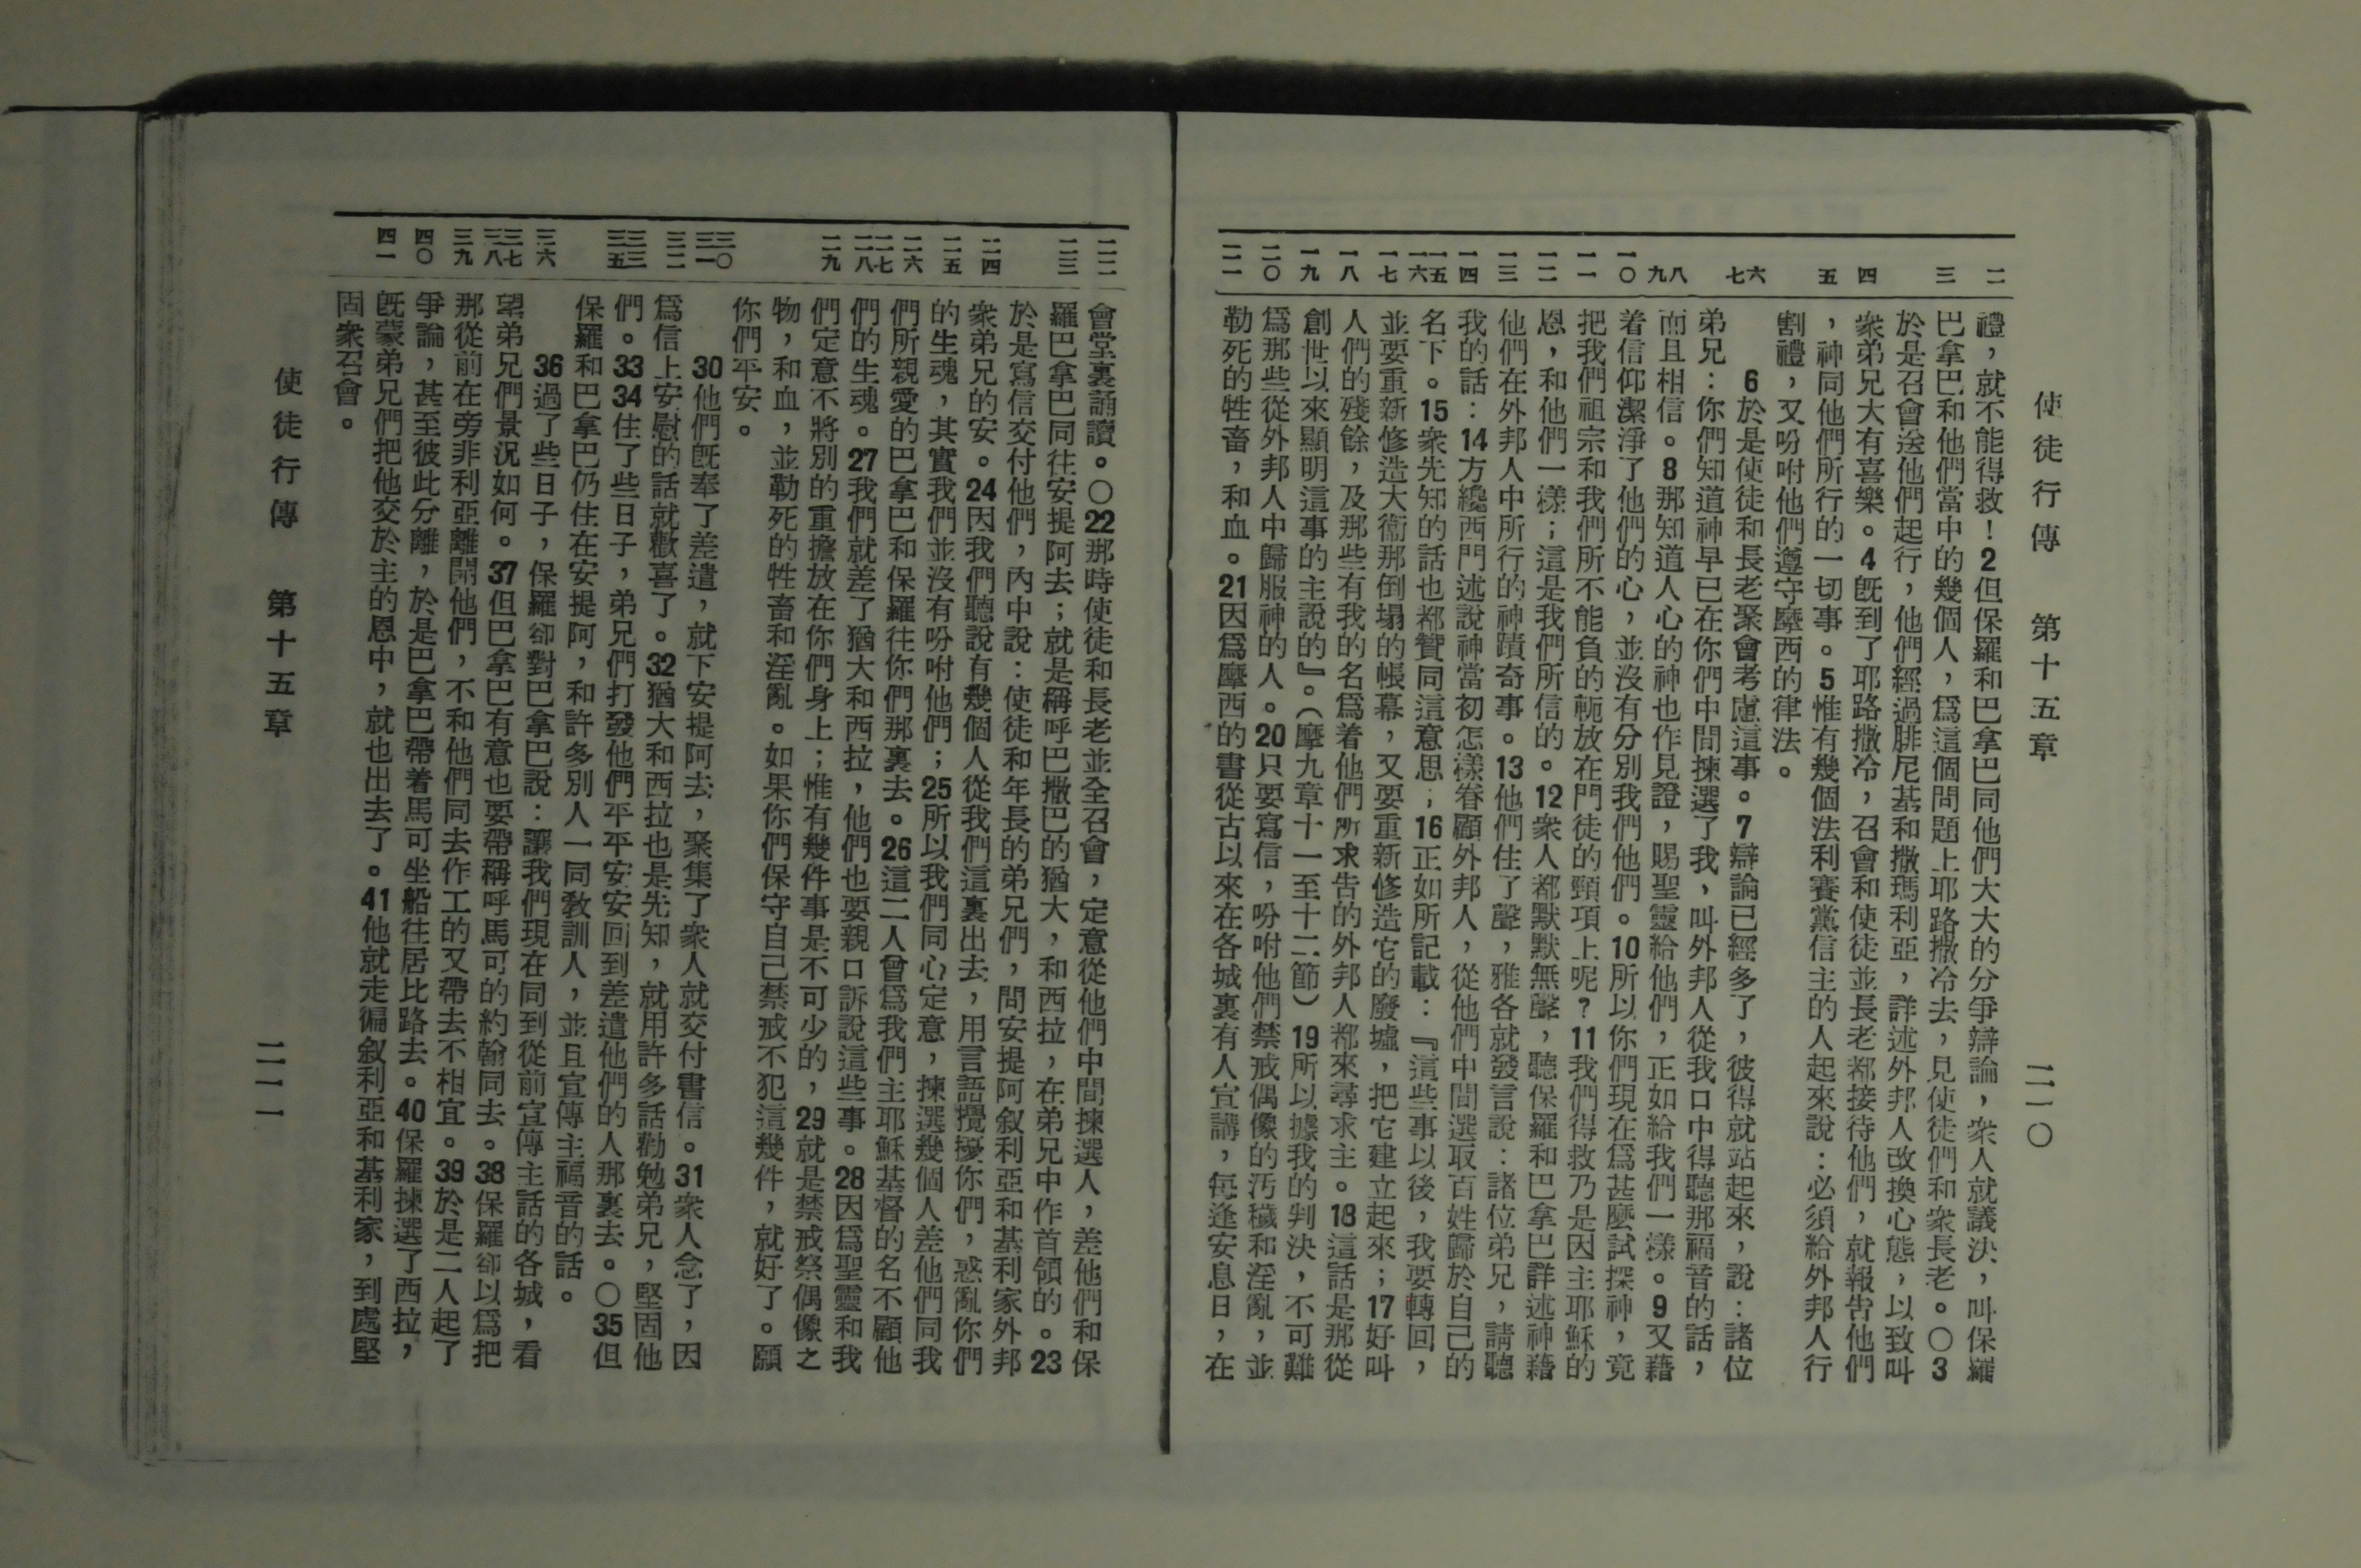 使徒行傳　第十五章　二一〇
二
三
四
五
六
七
八
九
一〇
一一
一二
一三
一四
一五
一六
一七
一八
一九
二〇
二一
禮，就不能得救！2但保羅和巴拿巴同他們大大的分爭辯論，衆人就議決，叫保羅
巴拿巴和他們當中的幾個人，爲這個問題上耶路撒冷去，見使徒們和衆長老。〇3
於是召會送他們起行，他們經過腓尼基和撒瑪利亞，詳述外邦人改換心態，以致叫
衆弟兄大有喜樂。4旣到了耶路撒冷，召會和使徒並長老都接待他們，就報告他們
，神同他們所行的一切事。5惟有幾個法利賽黨信主的人起來說：必須給外邦人行
割禮，又吩咐他們遵守摩西的律法。
6於是使徒和長老聚會考慮這事。7辯論已經多了，彼得就站起來，說：諸位
弟兄：你們知道神早已在你們中間揀選了我，叫外邦人從我口中得聽那福音的話，
而且相信。8那知道人心的神也作見證，賜聖靈給他們，正如給我們一樣。9又藉
着信仰潔淨了他們的心，並沒有分別我們他們。10所以你們現在爲甚麼試探神，竟
把我們祖宗和我們所不能負的軛放在門徒的頸項上呢?11我們得救乃是因主耶穌的
恩，和他們一樣；這是我們所信的。12衆人都默默無聲，聽保羅和巴拿巴詳述神藉
他們在外邦人中所行的神蹟奇事。13他們住了聲，雅各就發言說：諸位弟兄，請聽
我的話：14方纔西門述說神當初怎樣眷顧外邦人，從他們中間選取百姓歸於自己的
名下。15衆先知的話也都贊同這意思；16正如所記載：『這些事以後，我要轉回，
並要重新修造大衞那倒塌的帳幕，又要重新修造它的廢墟，把它建立起來；17好叫
人們的殘餘，及那些有我的名爲着他們所求告的外邦人都來尋求主。18這話是那從
創世以來顯明這事的主說的』。（摩九章十一至十二節）19所以據我的判決，不可難
爲那些從外邦人中歸服神的人。20只要寫信，吩咐他們禁戒偶像的汚穢和淫亂，並
勒死的牲畜，和血。21因爲摩西的書從古以來在各城裏有人宣講，每逢安息日，在
二二
二三
二四
二五
二六
二七
二八
二九
三〇
三一
三二
三三
三五
三六
三七
三八
三九
四〇
四一
會堂裏誦讀。〇22那時使徒和長老並全召會，定意從他們中間揀選人，差他們和保
羅巴拿巴同往安提阿去；就是稱呼巴撒巴的猶大，和西拉，在弟兄中作首領的。23
於是寫信交付他們，內中說：使徒和年長的弟兄們，問安提阿叙利亞和基利家外邦
衆弟兄的安。24因我們聽說有幾個人從我們這裏出去，用言語攪擾你們，惑亂你們
的生魂，其實我們並沒有吩咐他們；25所以我們同心定意，揀選幾個人差他們同我
們所親愛的巴拿巴和保羅往你們那裏去。26這二人曾爲我們主耶穌基督的名不顧他
們的生魂。27我們就差了猶大和西拉，他們也要親口訴說這些事。28因爲聖靈和我
們定意不將別的重擔放在你們身上；惟有幾件事是不可少的，29就是禁戒祭偶像之
物，和血，並勒死的牲畜和淫亂。如果你們保守自己禁戒不犯這幾件，就好了。願
你們平安。
30他們旣奉了差遣，就下安提阿去，聚集了衆人就交付書信。31衆人念了，因
爲信上安慰的話就歡喜了。32猶大和西拉也是先知，就用許多話勸勉弟兄，堅固他
們。33 34住了些日子，弟兄們打發他們平平安安回到差遣他們的人那裏去。〇35但
保羅和巴拿巴仍住在安提阿，和許多別人一同敎訓人，並且宣傳主福音的話。
36過了些日子，保羅卻對巴拿巴說：讓我們現在同到從前宣傳主話的各城，看
望弟兄們景況如何。37但巴拿巴有意也要帶稱呼馬可的約翰同去。38保羅卻以爲把
那從前在旁非利亞離開他們，不和他們同去作工的又帶去不相宜。39於是二人起了
爭論，甚至彼此分離，於是巴拿巴帶着馬可坐船往居比路去。40保羅揀選了西拉，
旣蒙弟兄們把他交於主的恩中，就也出去了。41他就走徧叙利亞和基利家，到處堅
固衆召會。
使徒行傳　第十五章　二一一